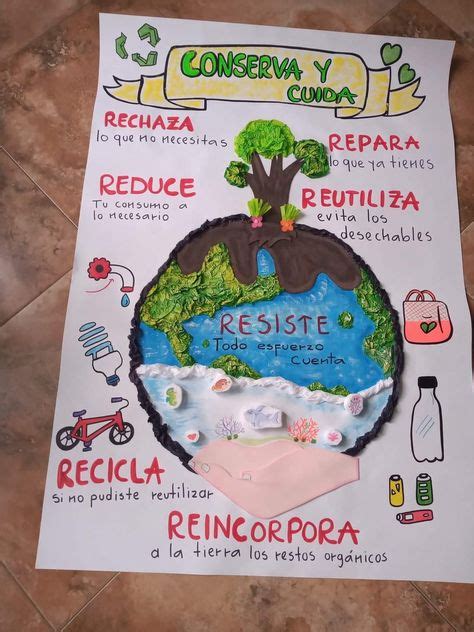 CONSERVA Y
CUIDA
RECHAZA
lo que no necesitas
REPARA
lo que ya tienes
REDUCE
Tu consumo a
lo necesario
REUTILIZA
evita los
desechables
RESISTE
Todo esfuerzo
cuenta
RECICLA
si no pudiste reutilizar
REINCORPORA
a la tierra los restos orgánicos